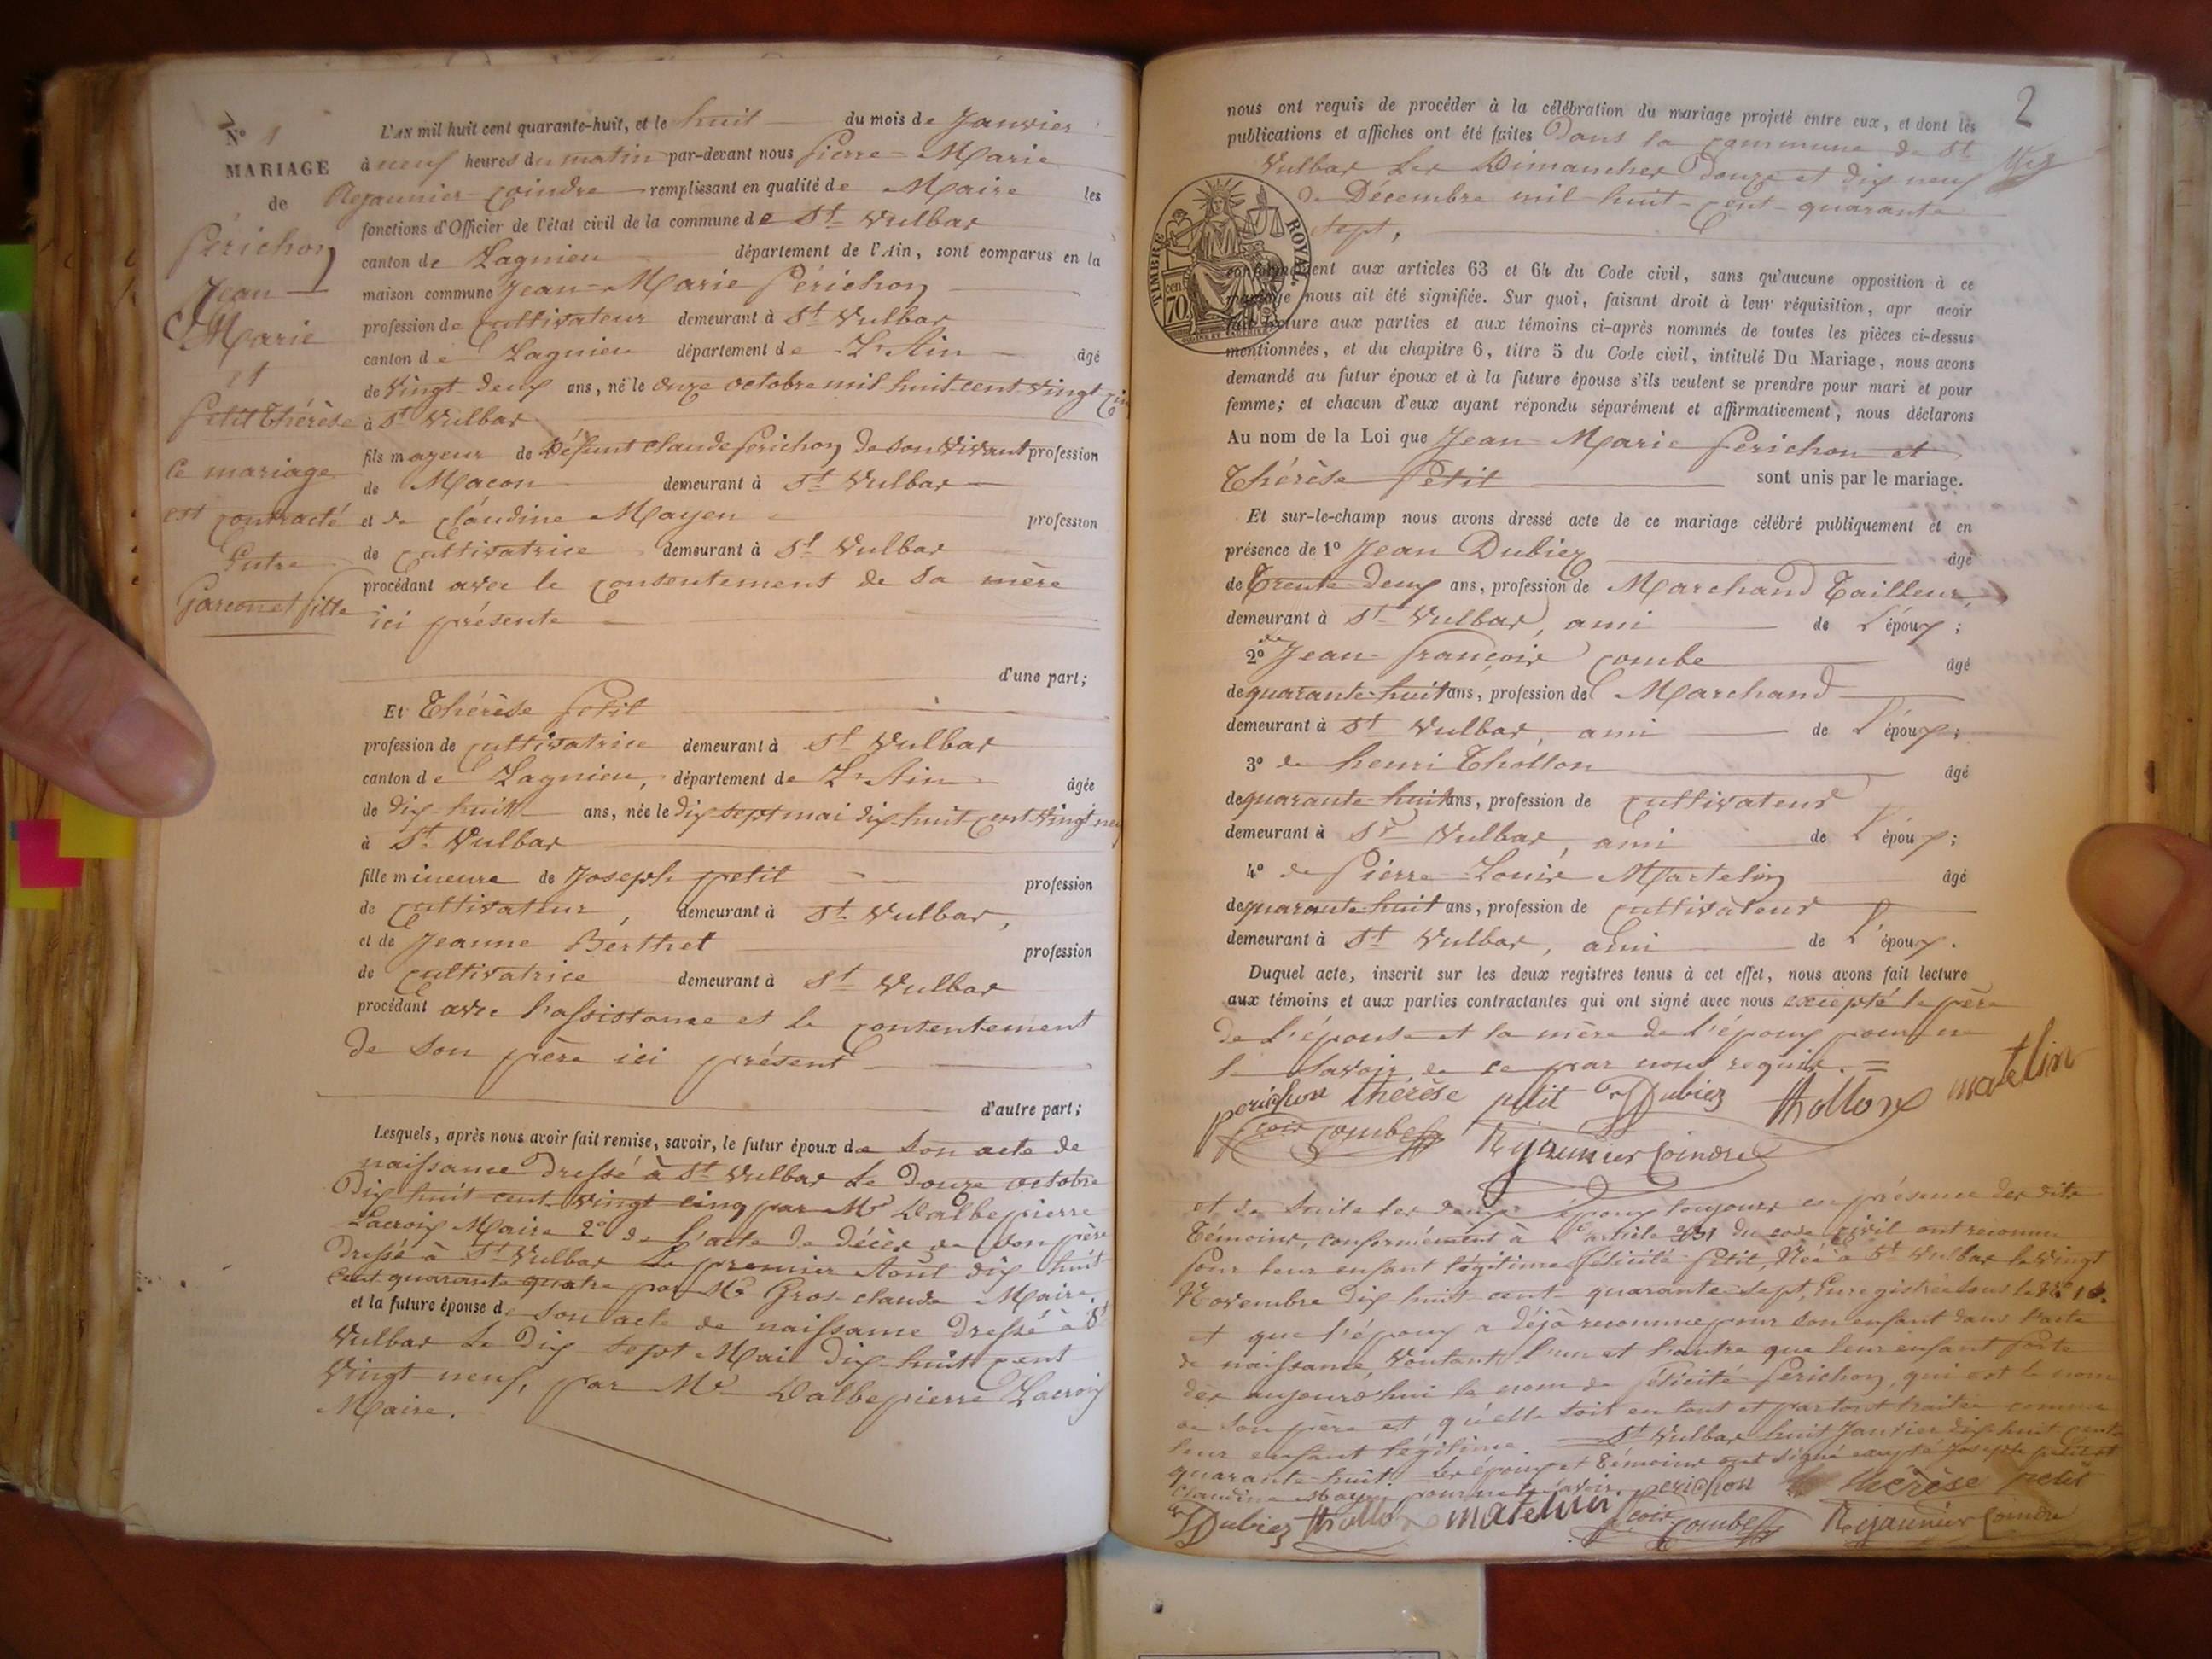 N° 1
MARIAGE
de
Périchon
Jean
Marie
et
Petit Thérèse
Ce mariage
est contracté
Entre
Garcon et fille
L'AN mil huit cent quarante-huit, et le huit du mois de Janvier
à neuf heures du matin par-devant nous Pierre-Marie
Rejaunier-Coindre remplissant en qualité de Maire les
fonctions d'Officier de l'état civil de la commune de St Vulbas
canton de Lagnieu département de l'Ain, sont comparus en la
maison commune Jean-Marie Périchon
profession de Cultivateur demeurant à St Vulbas
canton de Lagnieu département de L'Ain âgé
de Vingt-deux ans, né le onze octobre mil huit cent vingt cinq
à St Vulbas
fils mayeur de Défunt Claude Perichon de son vivant profession
de Macon demeurant à St Vulbas
et de Claudine Mayen profession
de Cultivatrice demeurant à St Vulbas
procédant avec le Consentement de sa mère
ici présente
d'une part;
Et Thérèse Petit
profession de Cultivatrice demeurant à St Vulbas
canton de Lagnieu, département de L'Ain âgée
de dix-huit ans, née le dix sept mai dix-huit cent vingt neuf
à St Vulbas
fille mineure de Joseph petit profession
de Cultivateur, demeurant à St Vulbas,
et de Jeanne Berthet profession
de Cultivatrice demeurant à St Vulbas
procédant avec l'assistance et le Consentement
de son père ici présent
d'autre part;
Lesquels, après nous avoir fait remise, savoir, le futur époux de son acte de
naissance dressé à St Vulbas le douze octobre
Dix huit cent vingt cinq par Mr Dalbepierre
Lacroix Maire 2° de l'acte de décès de son père
dressé à St Vulbas le premier Août dix huit
cent quarante quatre par Mr Gros-claude Maire.
et la future épouse de son acte de naissance dressé à St
Vulbas le dix sept Mai dix-huit cent
vingt-neuf, par Mr Dalbepierre Lacroix
Maire.
2
nous ont requis de procéder à la célébration du mariage projeté entre eux, et dont les
publications et affiches ont été faites Dans la Commune de St
Vulbas les Dimanches Douze et dix neuf
de Décembre mil huit-cent-quarante
sept,
TIMBRE ROYAL
70 cen
conformément aux articles 63 et 64 du Code civil, sans qu'aucune opposition à ce
mariage nous ait été signifiée. Sur quoi, faisant droit à leur réquisition, apr avoir
fait lecture aux parties et aux témoins ci-après nommés de toutes les pièces ci-dessus
mentionnées, et du chapitre 6, titre 5 du Code civil, intitulé Du Mariage, nous avons
demandé au futur époux et à la future épouse s'ils veulent se prendre pour mari et pour
femme; et chacun d'eux ayant répondu séparément et affirmativement, nous déclarons
Au nom de la Loi que Jean Marie Perichon et
Thérèse Petit sont unis par le mariage.
Et sur-le-champ nous avons dressé acte de ce mariage célébré publiquement et en
présence de 1° Jean Dubiez âgé
de Trente deux ans, profession de Marchand Tailleur,
demeurant à St Vulbas, ami de l'époux;
2° de Jean-françois Combe âgé
de quarante-huit ans, profession de Marchand
demeurant à St Vulbas, ami de l'époux;
3° de henri Thollon âgé
de quarante-huit ans, profession de Cultivateur
demeurant à St Vulbas, ami de l'époux;
4° de Pierre-Louis Martelin âgé
de quarante-huit ans, profession de Cultivateur
demeurant à St Vulbas, ami de l'époux.
Duquel acte, inscrit sur les deux registres tenus à cet effet, nous avons fait lecture
aux témoins et aux parties contractantes qui ont signé avec nous excepté le père
de l'épouse et la mère de l'époux pour ne
le Savoir de ce par nous requis.
perichon thérèse petit Dubiez thollon matelin
fçois Combe Rejaunier Coindre
et de suite les deux époux toujours en présence des dits
Témoins, conformément à l'article 331 du code civil ont reconnu
pour leur enfant légitime félicité Petit, Née à St Vulbas le vingt
Novembre dix-huit-cent-quarante sept, Enregistrée sous le N°
et que l'époux a déjà reconnue pour son enfant dans l'acte
de naissance, voulant l'un et l'autre que leur enfant porte
dès aujourd'hui le nom de félicité Perichon, qui est le nom
de son père et qu'elle soit en tout et partout traitée comme
leur enfant légitime. St Vulbas huit Janvier dix huit cent
quarante-huit les époux et témoins ont signé excepté Joseph petit et
Claudine Mayen pour ne le savoir. perichon thérèse petit
Dubiez thollon matelin fçois Combe Rejaunier Coindre